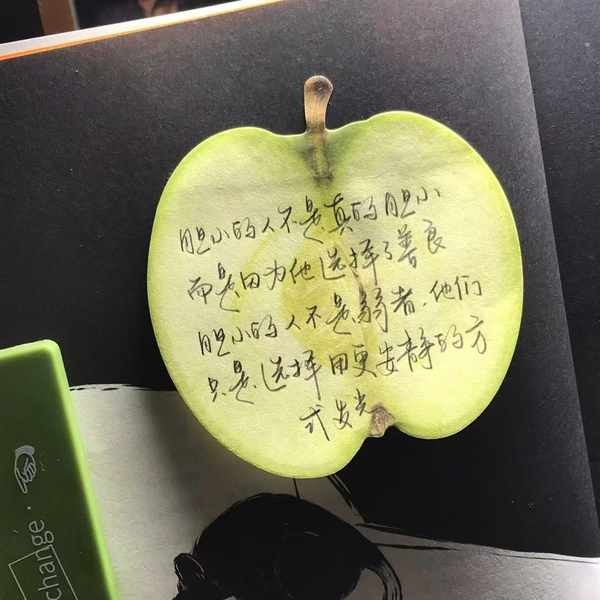 胆小的人不是真的胆小
而是因为他选择了善良
胆小的人不是弱者,他们
只是选择用更安静的方
式发光
change